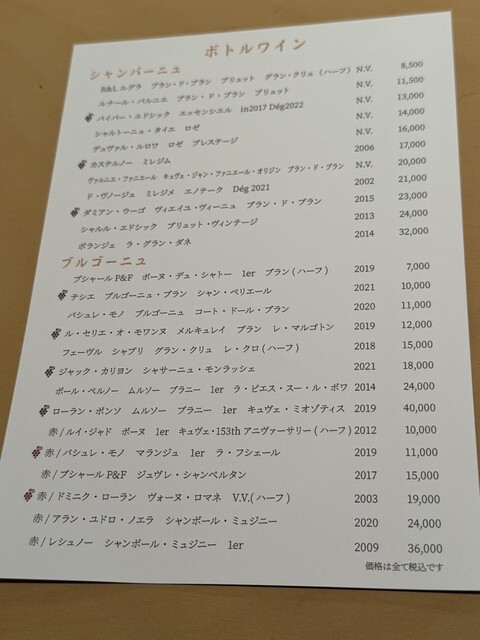 ボトルワイン
シャンパーニュ
R&L ルグラ ブラン・ド・ブラン ブリュット グラン・クリュ (ハーフ) N.V. 8,500
ルナール・バルニエ ブラン・ド・ブラン ブリュット N.V. 11,500
パイパー・エドシック エッセンシエル in2017 Dég2022 N.V. 13,000
シャルトーニュ・タイエ ロゼ N.V. 14,000
デュヴァル・ルロワ ロゼ プレステージ N.V. 16,000
カステルノー ミレジム 2006 17,000
ヴァルニエ・ファニエール キュヴェ・ジャン・ファニエール・オリジン ブラン・ド・ブラン N.V. 20,000
ド・ヴノージュ ミレジメ エノテーク Dég 2021 2002 21,000
ダミアン・ウーゴ ヴィエイユ・ヴィーニュ ブラン・ド・ブラン 2015 23,000
シャルル・エドシック ブリュット・ヴィンテージ 2013 24,000
ボランジェ ラ・グラン・ダネ 2014 32,000
ブルゴーニュ
ブシャール P&F ボーヌ・デュ・シャトー 1er ブラン (ハーフ) 2019 7,000
テシエ ブルゴーニュ・ブラン シャン・ペリエール 2021 10,000
バシュレ・モノ ブルゴーニュ コート・ドール・ブラン 2020 11,000
ル・セリエ・オ・モワンヌ メルキュレイ ブラン レ・マルゴトン 2019 12,000
フェーヴル シャブリ グラン・クリュ レ・クロ (ハーフ) 2018 15,000
ジャック・カリヨン シャサーニュ・モンラッシェ 2021 18,000
ポール・ペルノー ムルソー ブラニー 1er ラ・ピエス・スー・ル・ボワ 2014 24,000
ローラン・ポンソ ムルソー ブラニー 1er キュヴェ・ミオゾティス 2019 40,000
赤 / ルイ・ジャド ボーヌ 1er キュヴェ・153th アニヴァーサリー (ハーフ) 2012 10,000
赤 / バシュレ・モノ マランジュ 1er ラ・フシェール 2019 11,000
赤 / ブシャール P&F ジュヴレ・シャンベルタン 2017 15,000
赤 / ドミニク・ローラン ヴォーヌ・ロマネ V.V.(ハーフ) 2003 19,000
赤 / アラン・ユドロ・ノエラ シャンボール・ミュジニー 2020 24,000
赤 / レシュノー シャンボール・ミュジニー 1er 2009 36,000
価格は全て税込です